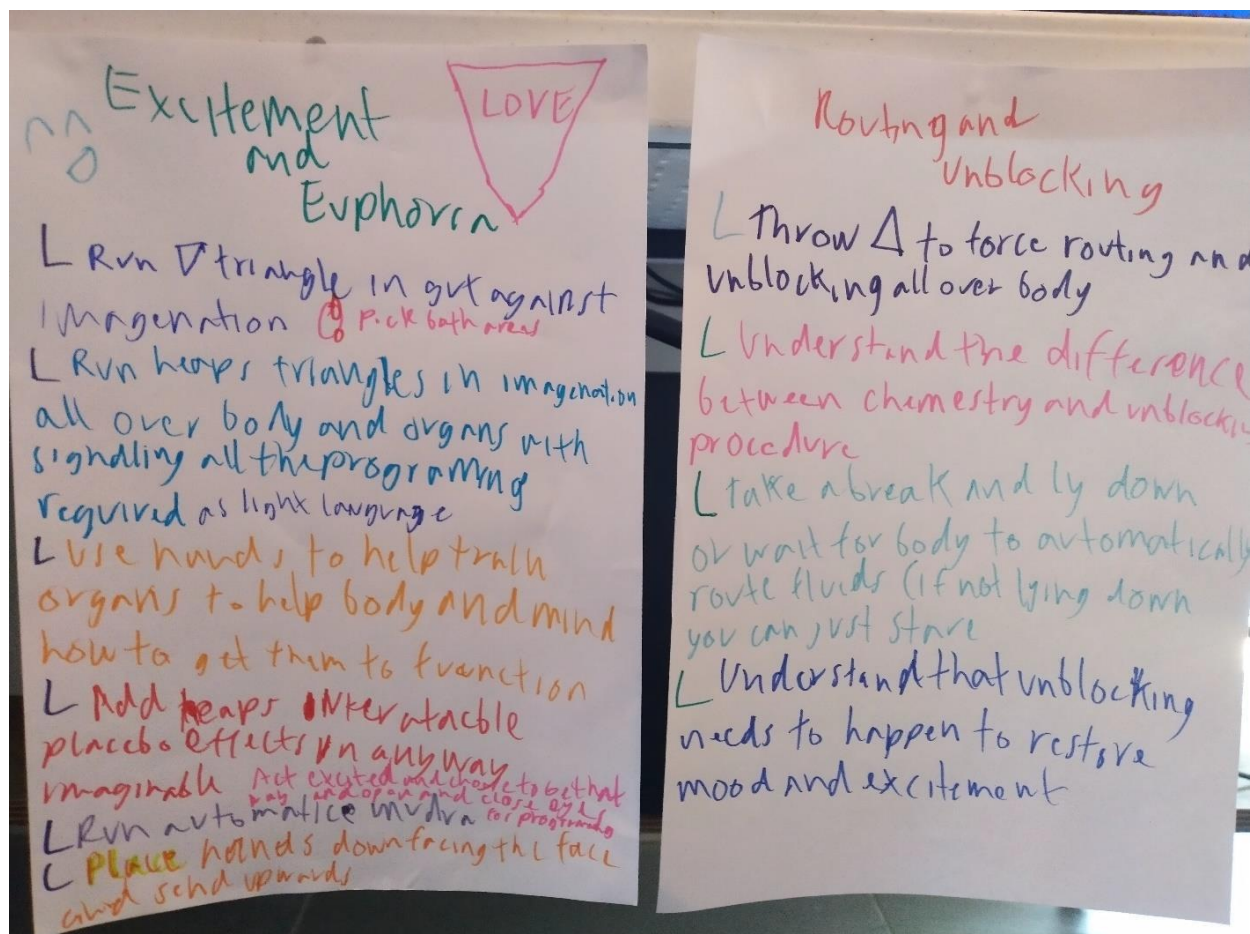 Excitement
and
Euphoria
LOVE
L Run ▽ triangle in gut against
imagenation pick both areas
L Run heaps triangles in imagenation
all over body and organs with
signalling all the programing
required as light language
L Use hands to help train
organs to help body and mind
how to get them to function
L Add heaps
placebo effects in anyway
imaginable Act excited and chose to be that
way and open and close eyes
L Run automatice mudra for programing
L Place hands down facing the face
and send upwards
Routing and
Unblocking
L Throw △ to force routing and
unblocking all over body
L Understand the difference
between chemestry and unblocking
procedure
L take a break and ly down
or wait for body to automatically
route fluids (if not lying down
you can just stare
L Understand that unblocking
needs to happen to restore
mood and excitement